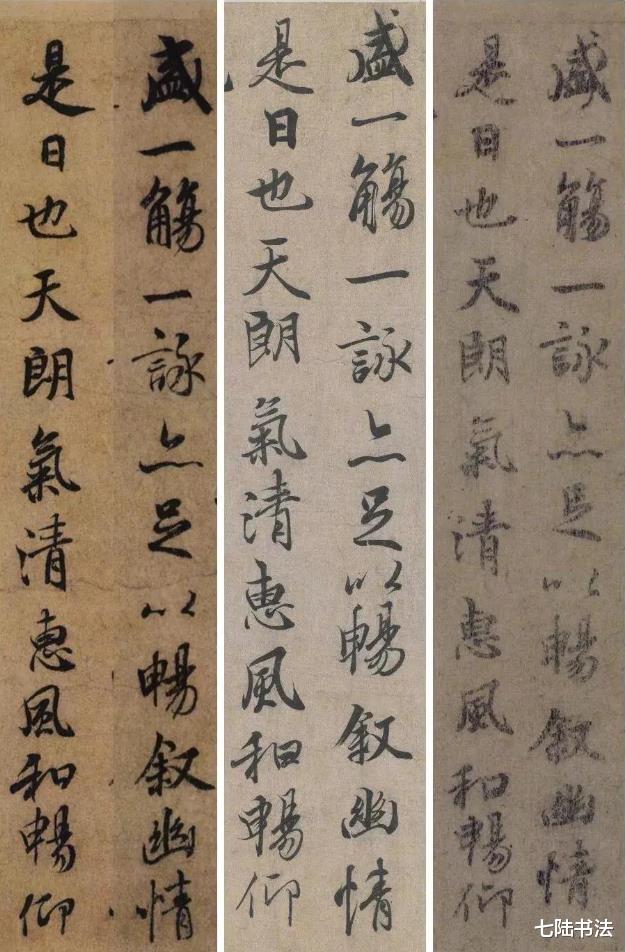 盛一觴一詠亦足以暢叙幽情
是日也天朗氣清惠風和暢仰
盛一觴一詠亦足以暢叙幽情
是日也天朗氣清惠風和暢仰
盛一觴一詠亦足以暢叙幽情
是日也天朗氣清惠風和暢仰
七陆书法